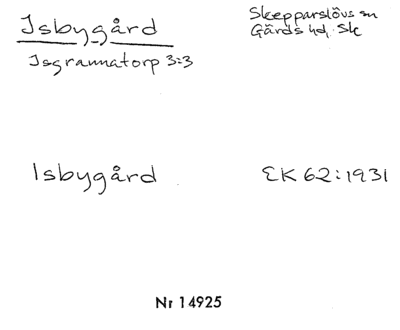 Isbygård
Skepparslövs sn
Gärds hd. Sk
Isgrannatorp 3:3
Isbygård
EK 62:1931
Nr 14925